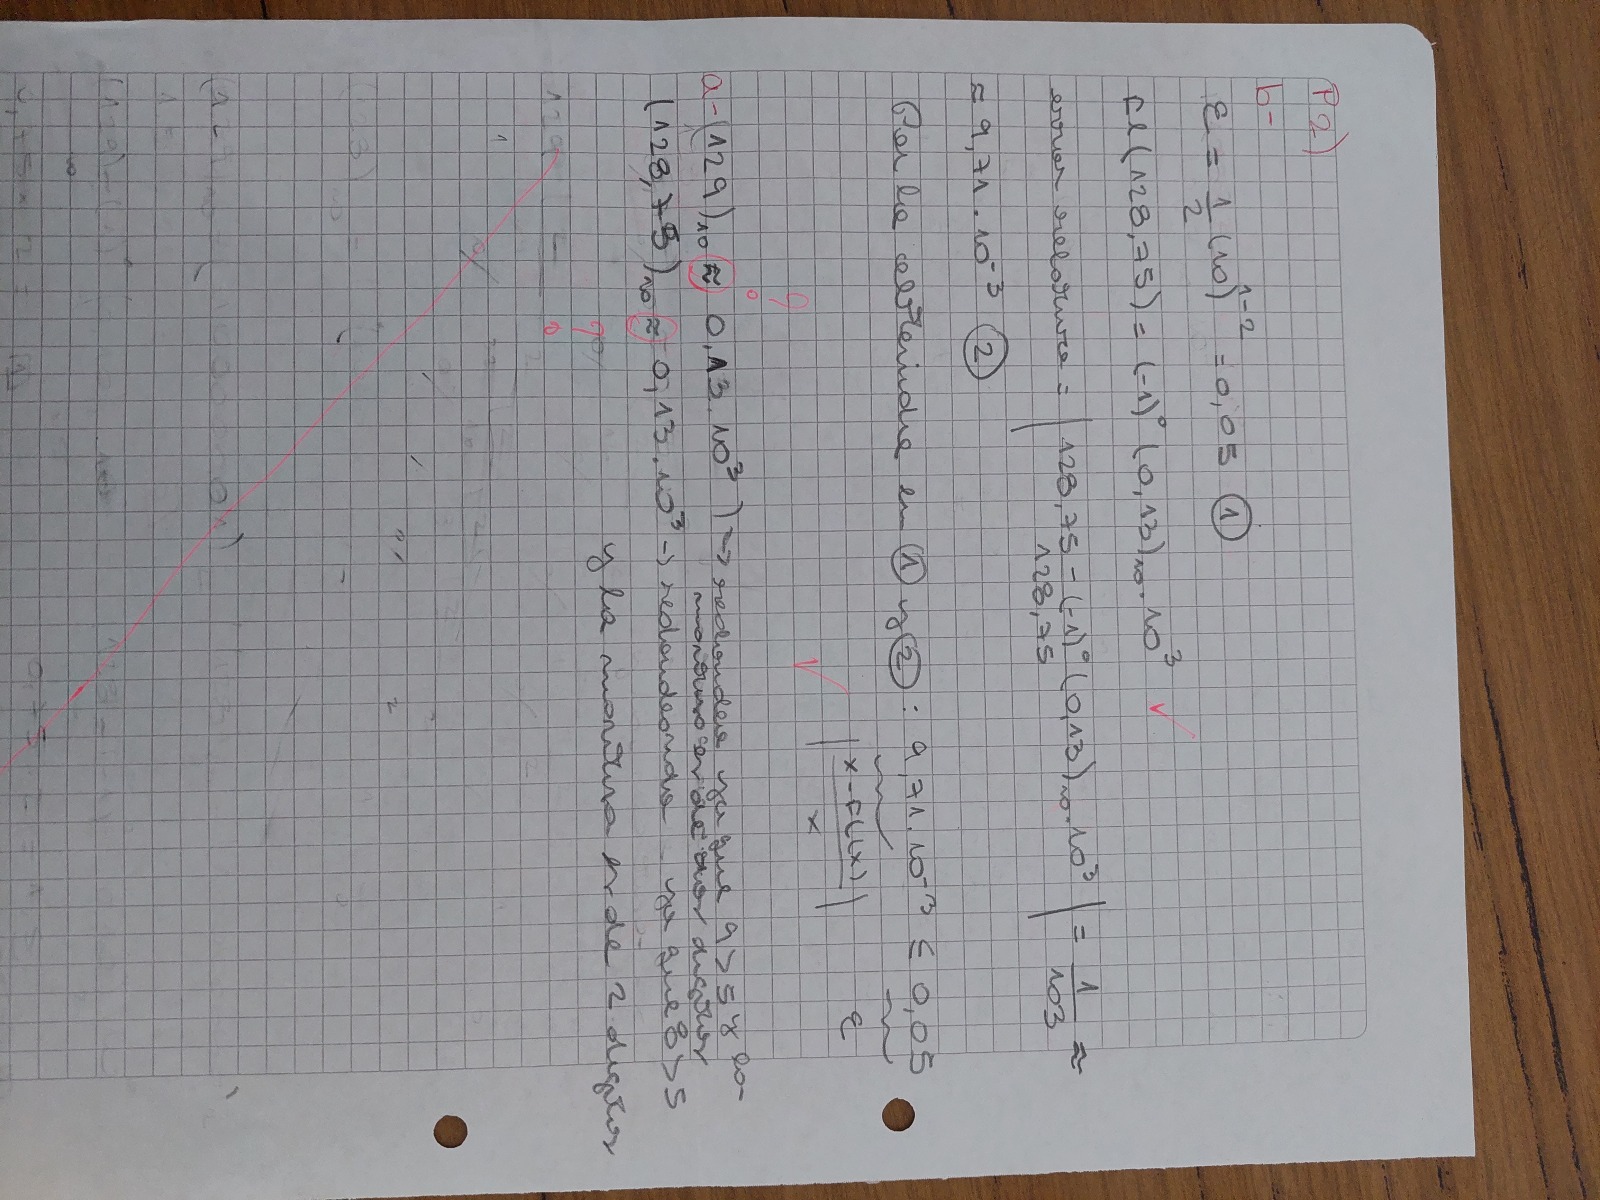 P2)
b-
ε = 1/2 (10)^1-2 = 0,05 ①
Fl(128,75) = (-1)^0 (0,13)₁₀.10^3 ✓
error relativo = | 128,75 - (-1)^0 (0,13)₁₀.10^3 / 128,75 | = 1/103 ≈
≈ 9,71.10^-3 ②
Por lo obtenido en ① y ② : 9,71.10^-3 ≤ 0,05
| x-Fl(x) / x | ε
✓
?
a- (129)₁₀ ≈ 0,13.10^3 ) → redondeo ya que 9>5 y la
mantisa es de dos digitos
(128,75)₁₀ ≈ 0,13.10^3 → redondeando ya que 8>5
y la mantisa es de 2 digitos
?
129